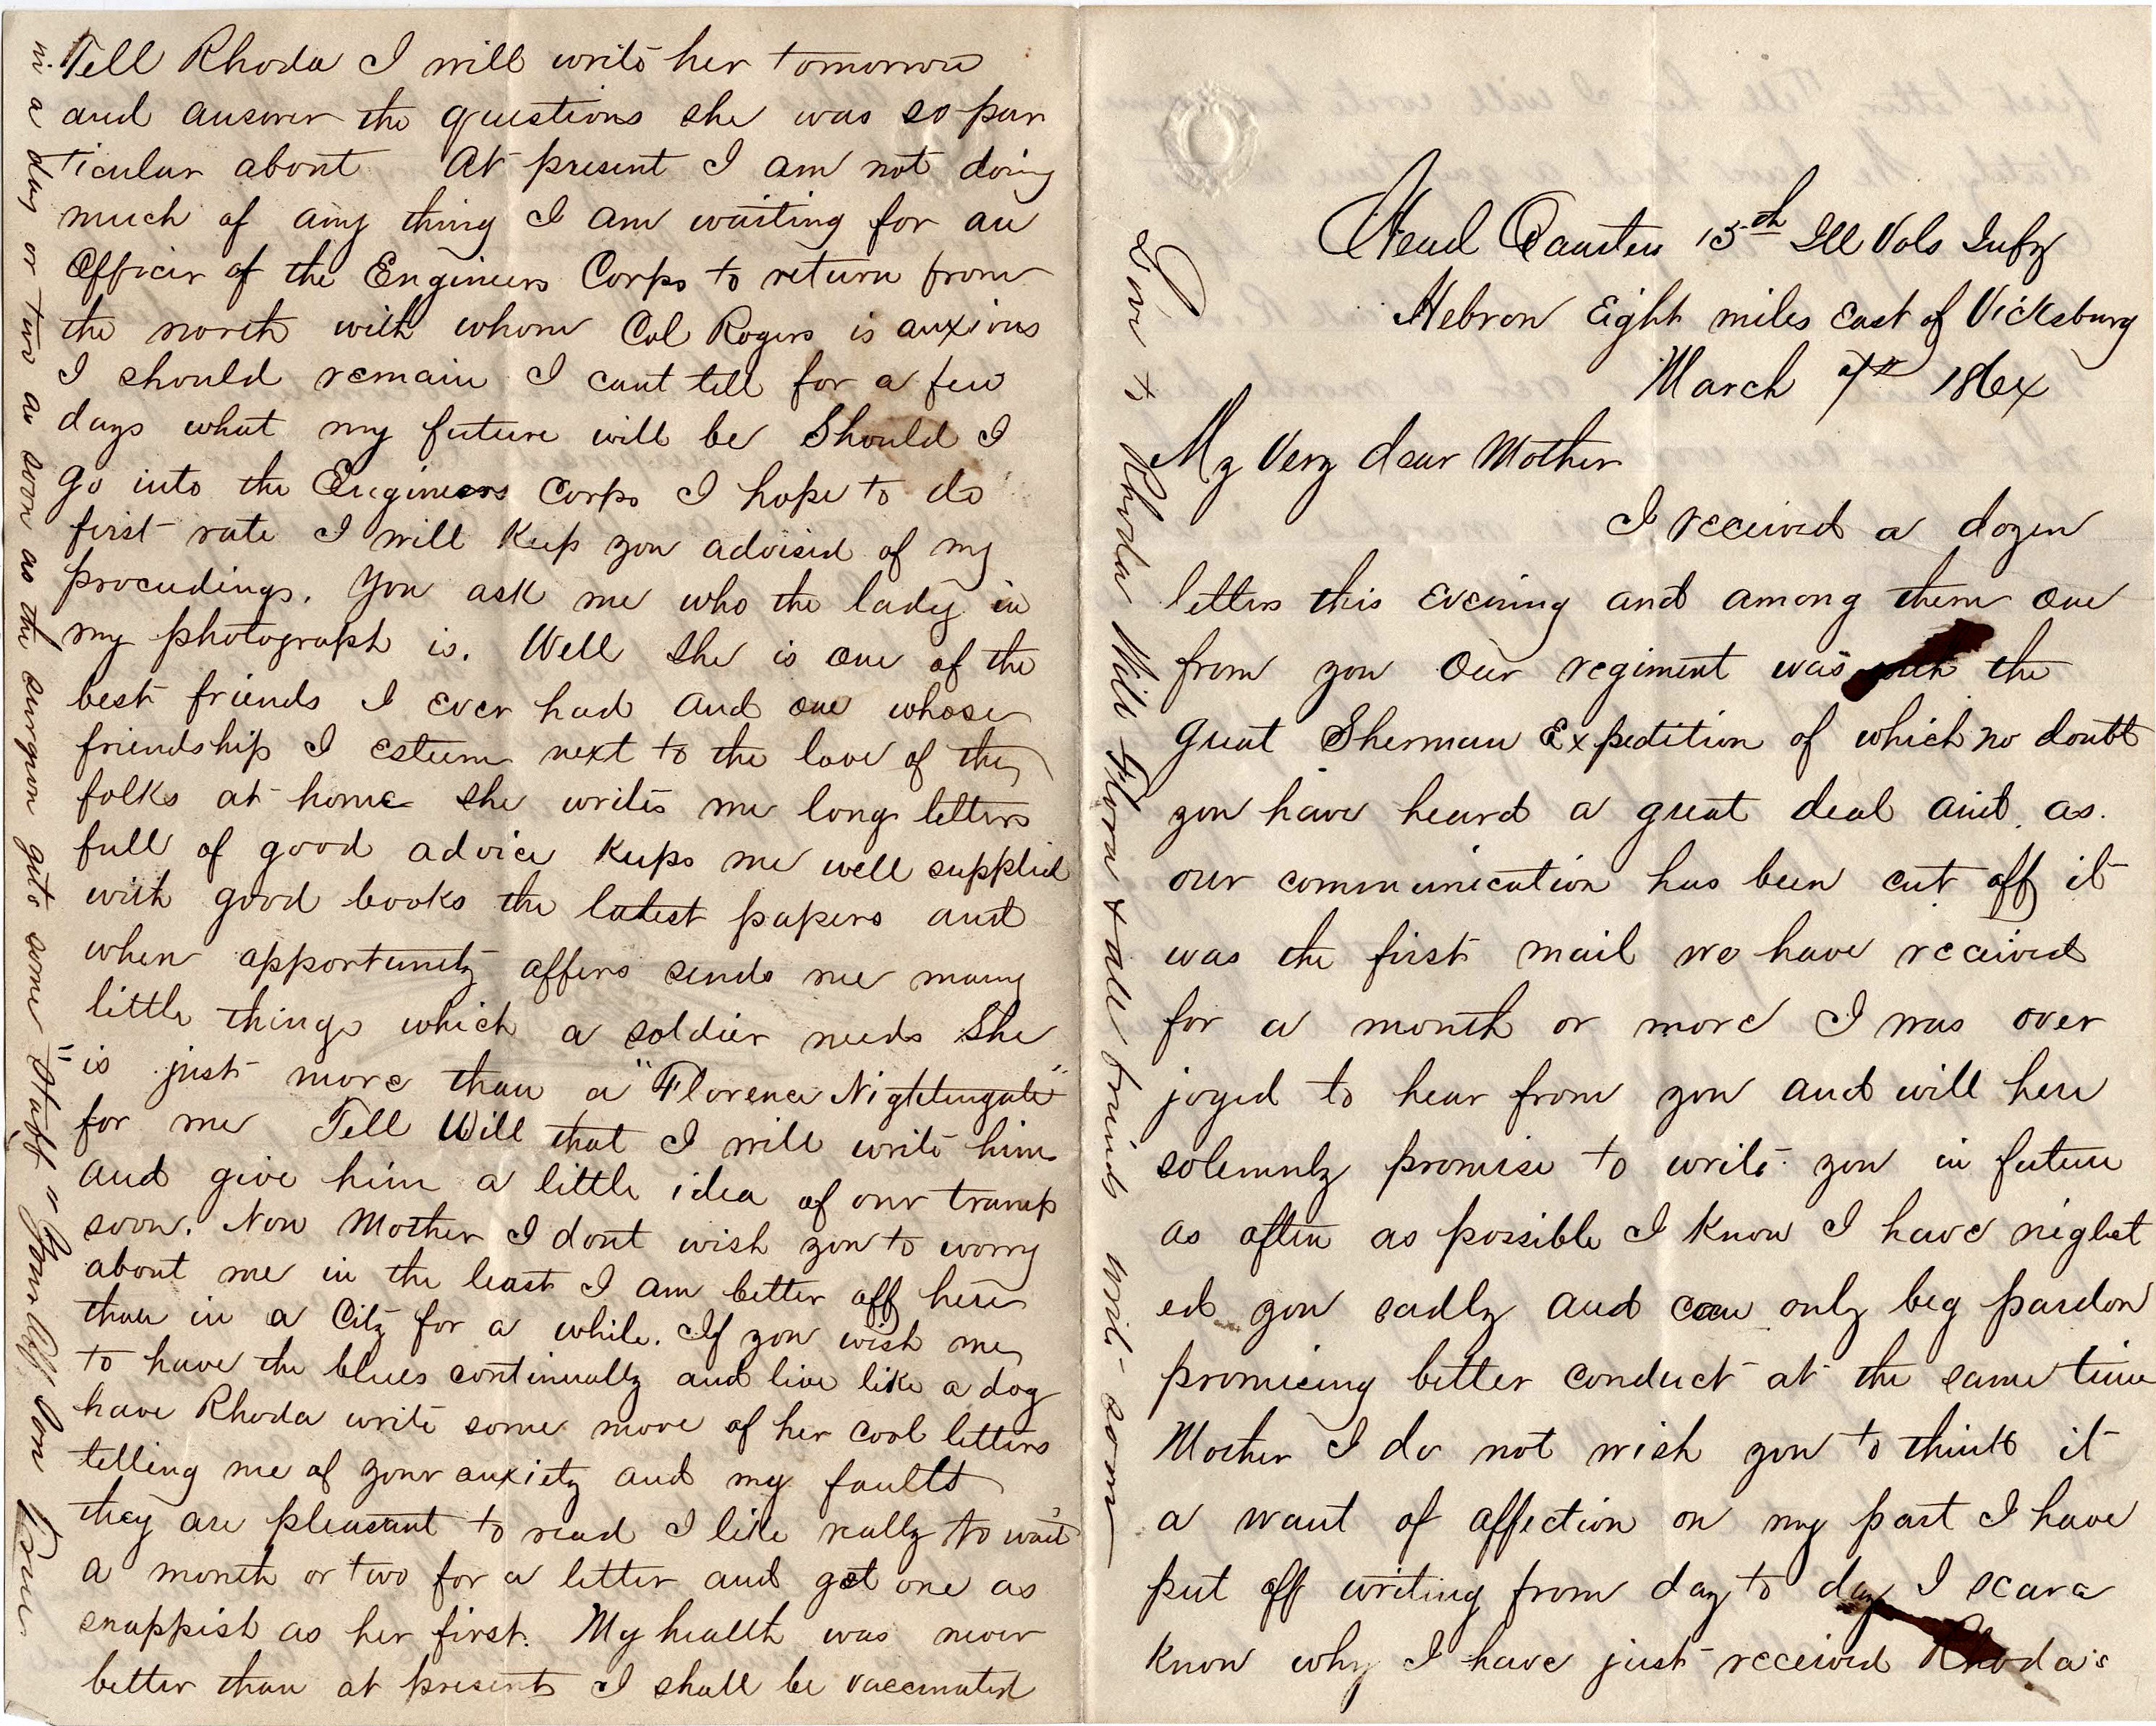 Head Quarters 15th Ill Vols Infy
Hebron Eight miles East of Vicksburg
March 7th 1864
My Very dear Mother
I received a dozen
letters this Evening and among them one
from you Our regiment was with the
great Sherman Expedition of which no doubt
you have heard a great deal and as
our communication has been cut off it
was the first mail we have received
for a month or more I was over
joyed to hear from you and will here
solemnly promise to write you in future
as often as possible I know I have neglect
ed you sadly and can only beg pardon
promising better conduct at the same time
Mother I do not wish you to think it
a want of affection on my part I have
put off writing from day to day I scarce
know why I have just received Rhoda's
Love to Rhoda Will Flora & all friends write soon
Tell Rhoda I will write her tomorrow
and answer the questions she was so par
ticular about At present I am not doing
much of any thing I am waiting for an
Officer of the Engineers Corps to return from
the north with whom Col Rogers is anxious
I should remain I cant tell for a few
days what my future will be Should I
go into the Engineers Corps I hope to do
first rate I will keep you advised of my
proceedings. You ask me who the lady in
my photograph is. Well she is one of the
best friends I ever had and one whose
friendship I esteem next to the love of the
folks at home she writes me long letters
full of good advice keeps me well supplied
with good books the latest papers and
when opportunity affers sends me many
little things which a soldier needs She
is just more than a "Florence Nightengale"
for me Tell Will that I will write him
and give him a little idea of our tramp
soon. Now Mother I dont wish you to worry
about me in the least I am better off here
than in a City for a while. If you wish me
to have the blues continually and live like a dog
have Rhoda write some more of her cool letters
telling me of your anxiety and my faults
they are pleasant to read I like really to wait
a month or two for a letter and get one as
snappish as her first. My health was never
better than at present I shall be vaccinated
in a day or two as soon as the surgeon gets some "Stuff" Your Aff Son